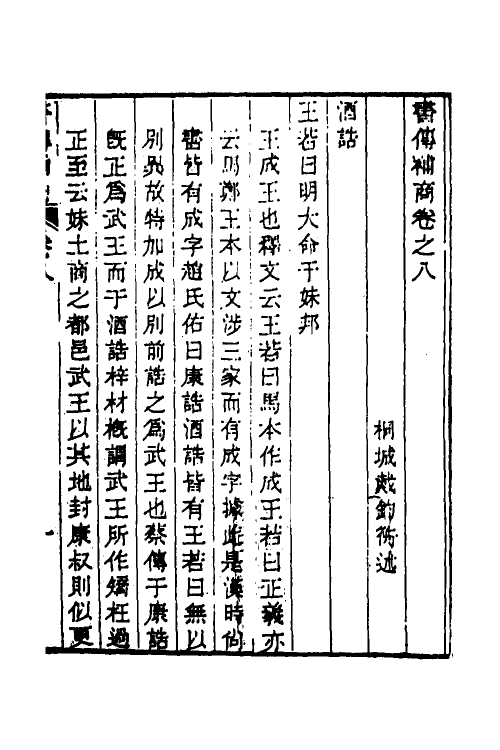 書傳補商卷之八
桐城戴鈞衡述
酒誥
王若曰明大命于妹邦
王成王也釋文云王若曰馬本作成王若曰正義亦
云馬鄭王本以文涉三家而有成字據此是漢時尙
書皆有成字趙氏佑曰康誥酒誥皆有王若曰無以
別異故特加成以別前誥之爲武王也蔡傳于康誥
旣正爲武王而于酒誥梓材槪謂武王所作矯枉過
正至云妹土商之都邑武王以其地封康叔則似更
一